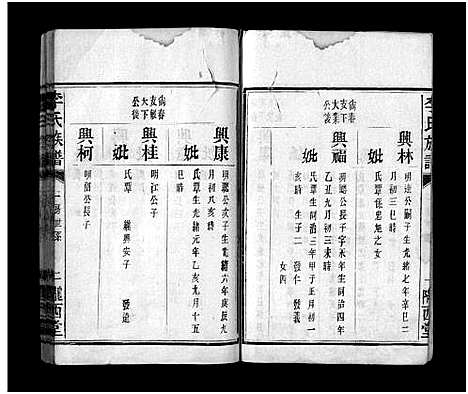 李氏族譜
隴西堂
興林
明達公嗣子生光緒七年辛巳二
月初三巳時
氏譚係忠旭之女
興福
明聰公長子字永年生同治四年
乙丑九月初三未時
妣
氏譚生同治三年甲子正月初一
亥時 生子二 發仁 發義
女四
興康
明聰公次子生光緒六年庚辰九
月初八亥時
妣
氏譚生光緒元年乙亥九月十五
巳時
興桂
明江公子
妣
氏譚 繼興安子 發達
興柯
明紹公長子
李氏族譜
二 隴西堂